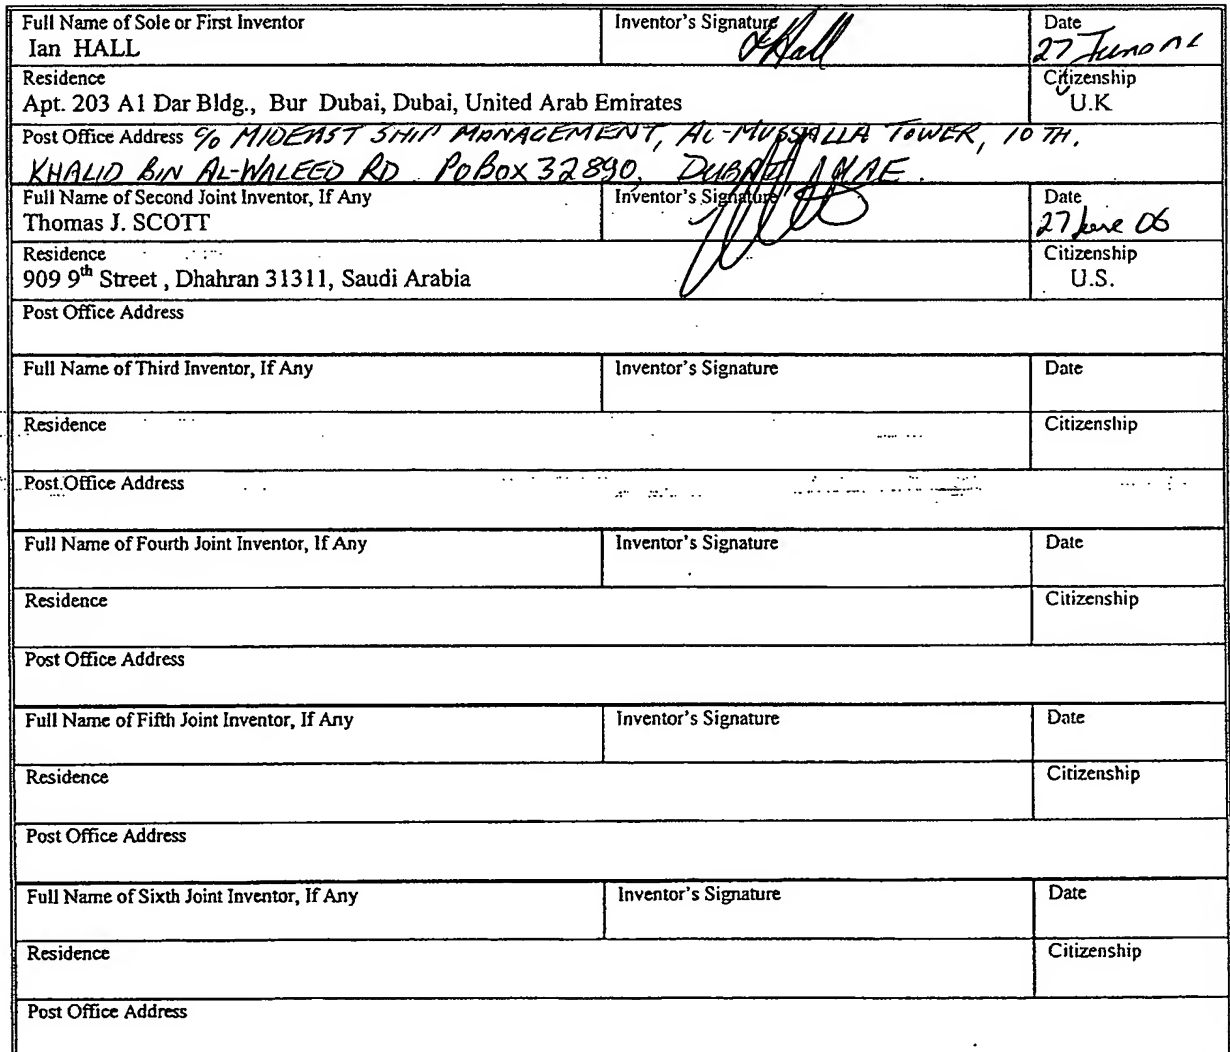 Full Name of Sole or First Inventor Inventor's Signature Date
Ian HALL I Hall 27 June 06
Residence Citizenship
Apt. 203 A1 Dar Bldg., Bur Dubai, Dubai, United Arab Emirates U.K
Post Office Address c/o MIDEAST SHIP MANAGEMENT, AL-MUSSALLA TOWER, 10 TH.
KHALID BIN AL-WALEED RD PO Box 32890, DUBAI, UAE.
Full Name of Second Joint Inventor, If Any Inventor's Signature Date
Thomas J. SCOTT 27 June 06
Residence Citizenship
909 9th Street , Dhahran 31311, Saudi Arabia U.S.
Post Office Address
Full Name of Third Inventor, If Any Inventor's Signature Date
Residence Citizenship
Post Office Address
Full Name of Fourth Joint Inventor, If Any Inventor's Signature Date
Residence Citizenship
Post Office Address
Full Name of Fifth Joint Inventor, If Any Inventor's Signature Date
Residence Citizenship
Post Office Address
Full Name of Sixth Joint Inventor, If Any Inventor's Signature Date
Residence Citizenship
Post Office Address